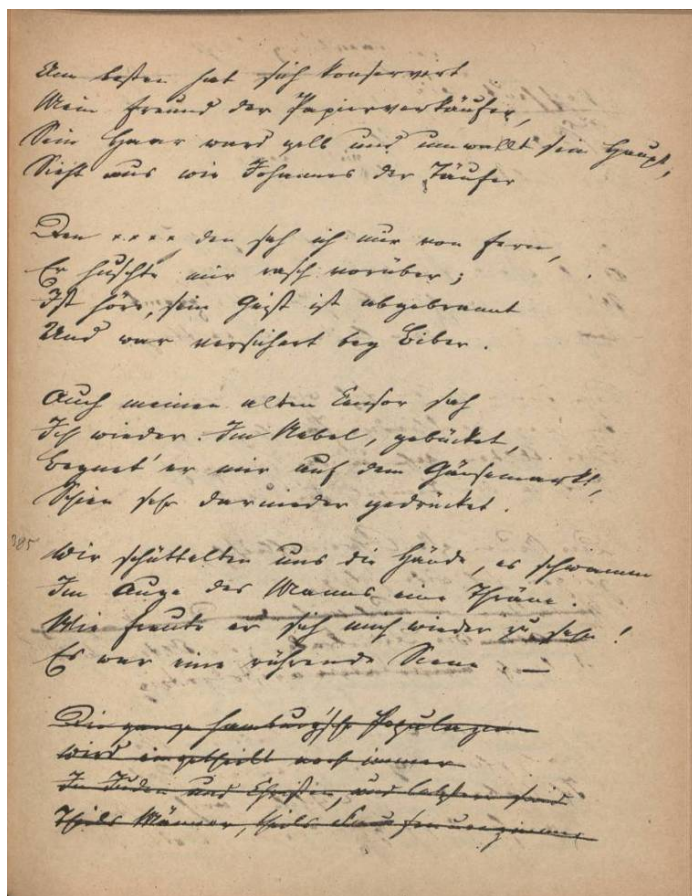 Am besten hat sich konservirt
Mein Freund der Papierverkäufer,
Sein Haar ward gelb und umwallt sein Haupt,
Sieht aus wie Johannes der Täufer

Den * * * *, den sah ich nur von fern,
Er huschte mir rasch vorüber;
Ich höre, sein Geist ist abgebrannt
Und war versichert bey Biber.

Auch meinen alten Censor sah
Ich wieder. Im Nebel, gebücket,
Begegnet' er mir auf dem Gänsemarkt,
Schien sehr darnieder gedrücket.

385
Wir schüttelten uns die Hände, es schwamm
Im Auge des Manns eine Thräne.
Wie freute er sich mich wieder zu sehn!
Es war eine rührende Scene. —

Die ganze hamburg'sche Populazion
Wird eingetheilt noch immer
In Juden und Christen, und letztere sind
Theils Männer, theils